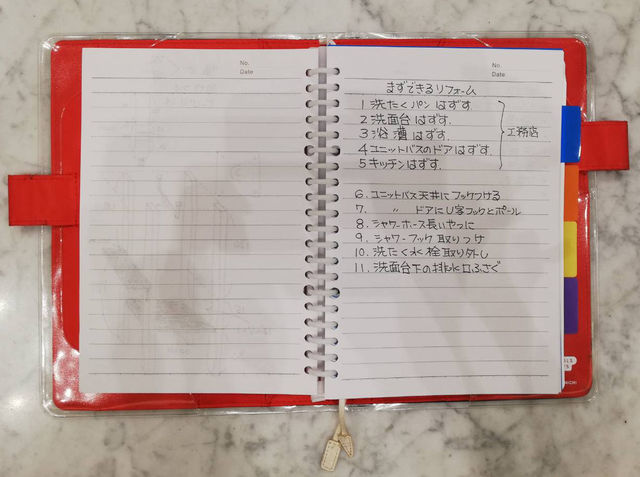 No.
Date
No.
Date
まずできるリフォーム
1 洗たくパン はずす
2 洗面台 はずす.
3 浴槽 はずす.
4 ユニットバスのドア はずす.
5 キッチン はずす.
工務店
6. ユニットバス 天井に フックつける
7. 〃 ドアに U字フックとポール
8. シャワーホース長いやつに
9. シャワーフック 取りつけ
10. 洗たく水栓 取り外し
11. 洗面台下の排水口ふさぐ